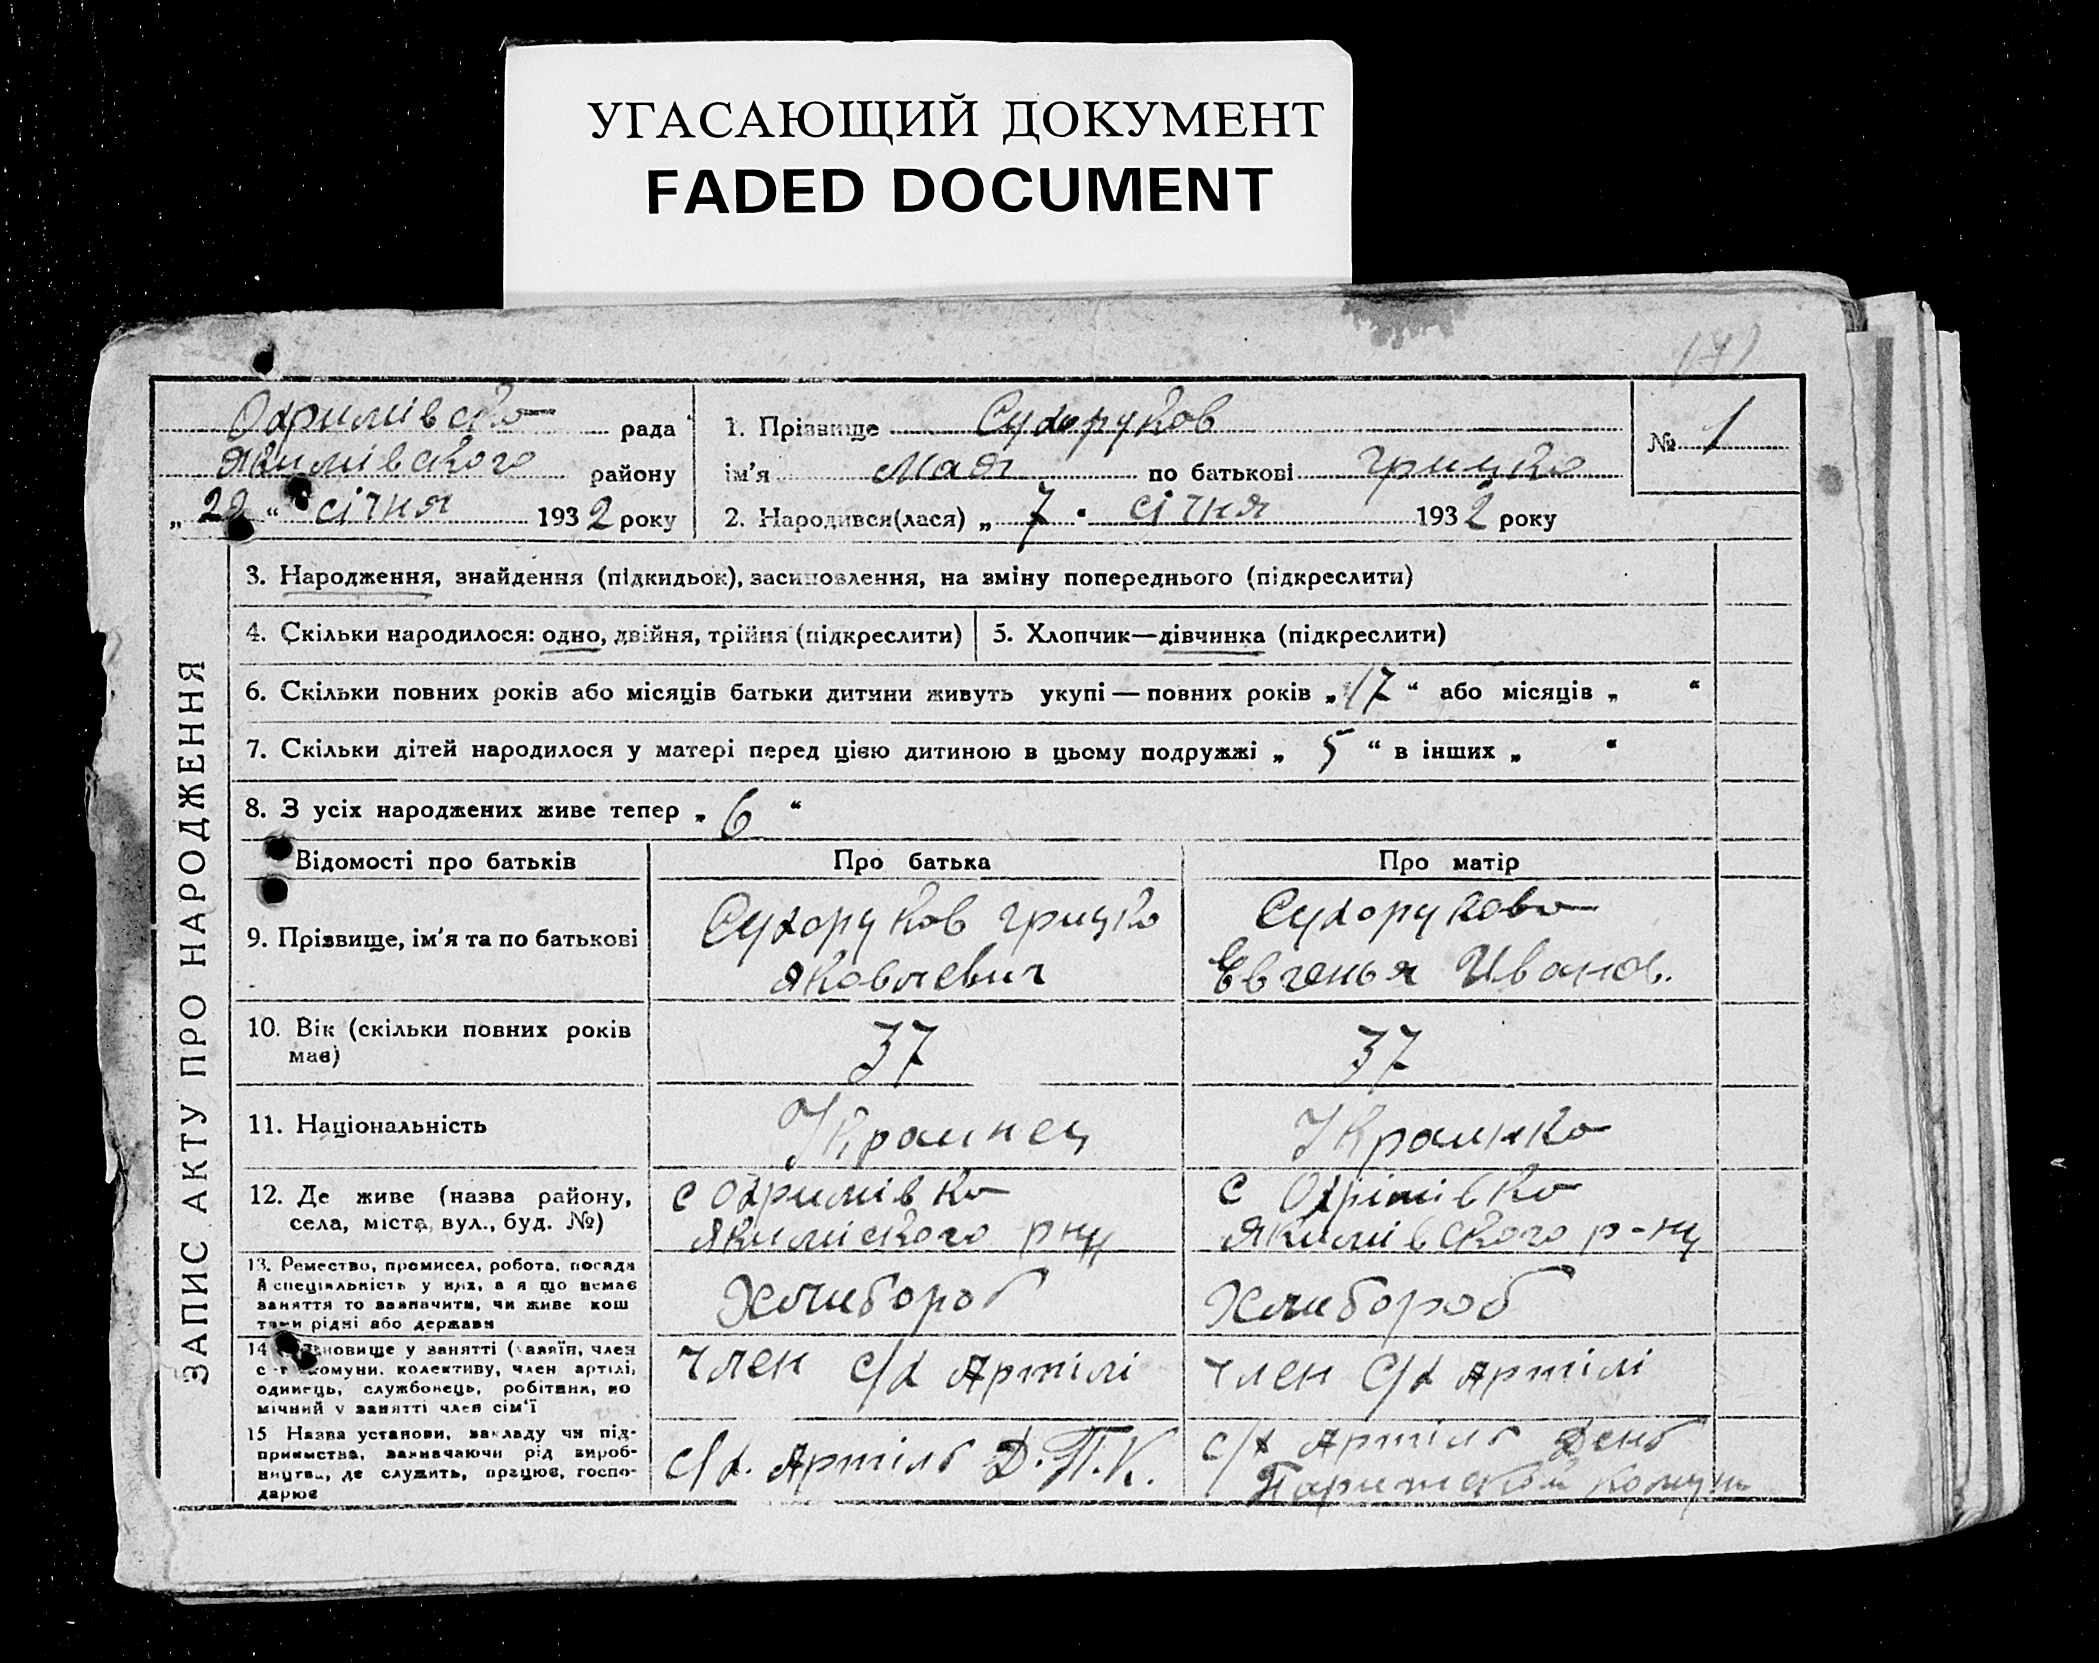 УГАСАЮЩИЙ ДОКУМЕНТ
FADED DOCUMENT
Охримівска рада
Якимівского району
„ 22 “ січня 1932 року
1. Прізвище Сухоруков
ім'я Мая по батькові Грицко
2. Народився(лася) „ 7 “ січня 1932 року
№ 1
ЗАПИС АКТУ ПРО НАРОДЖЕННЯ
3. Народження, знайдення (підкидьок), засиновлення, на зміну попереднього (підкреслити)
4. Скільки народилося: одно, двійня, трійня (підкреслити)
5. Хлопчик—дівчинка (підкреслити)
6. Скільки повних років або місяців батьки дитини живуть укупі — повних років „ 17 “ або місяців „ “
7. Скільки дітей народилося у матері перед цією дитиною в цьому подружжі „ 5 “ в інших „ “
8. З усіх народжених живе тепер „ 6 “
Відомості про батьків
Про батька
Про матір
9. Прізвище, ім'я та по батькові
Сухоруков Грицко
Яковлевич
Сухорукова
Евгенья Иванов.
10. Вік (скільки повних років
має)
37
37
11. Національність
Украинец
Украинка
12. Де живе (назва району,
села, міста, вул., буд. №)
с Охримівка
Якиміского рну
с Охрімівка
Якимівского р-ну
13. Ремество, промисел, робота, посада
й спеціяльність у них, а я що немає
заняття то зазначити, чи живе кош
тами рідні або держави
Хлибороб
Хлибороб
14 становище у занятті (хазяїн, член
комуни, колективу, член артілі,
одинець, службовець, робітник, по
мічний у занятті член сім'ї
член с/х Артілі
член с/х Артілі
15 Назва установи, закладу чи під-
приємства, зазначаючи рід вироб-
ництва, де служить, працює, госпо-
дарює
с/х. Артіль Д.П.К.
с/х Артіль День
Парижской комуни